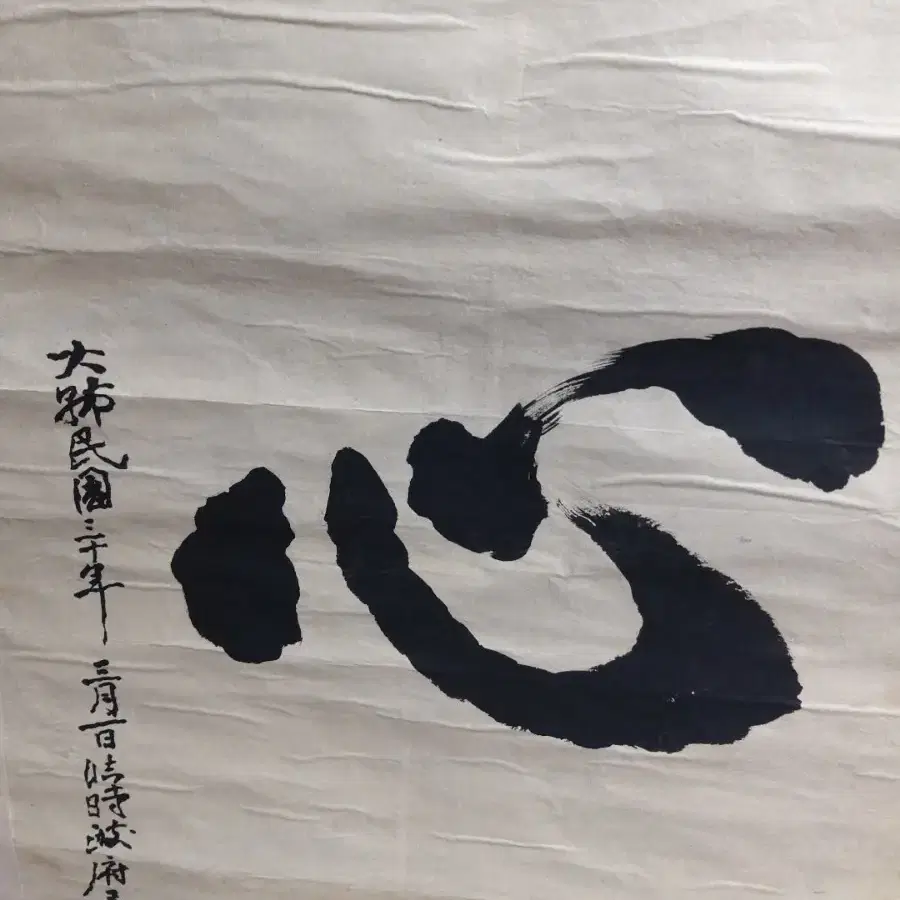 心
大韓民國三十年 三月一日臨時政府